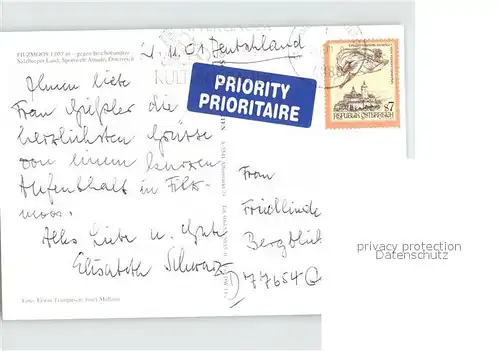 FILZMOOS 1.057 m - gegen Bischofsmütze
Salzburger Land, Sportwelt Amadé, Österreich
Deutschland
PRIORITY
PRIORITAIRE
S7
REPUBLIK ÖSTERREICH
Ihnen liebe
Frau Gießler die
herzlichsten Grüsse
von einem kurzen
Aufenthalt in Filz-
moos.
Alles Liebe u. Gute
Elisabeth Schwarz
Frau
Friedlinde
Bergblick
77654
privacy protection
Datenschutz